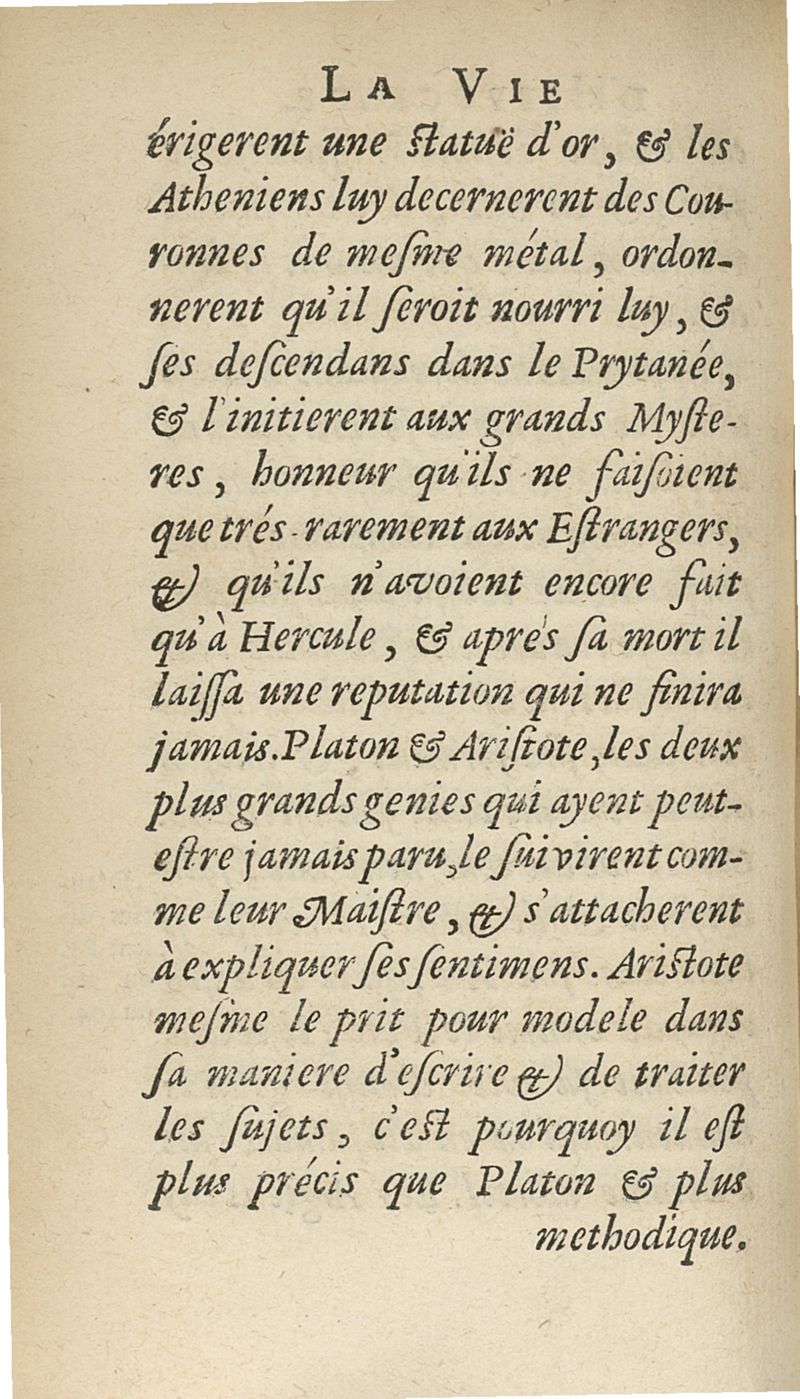 LA VIE
érigerent une statuë d'or, & les
Atheniens luy decernerent des Cou-
ronnes de meſme métal, ordon-
nerent qu'il ſeroit nourri luy, &
ſes deſcendans dans le Prytanée,
& l'initierent aux grands Myſte-
res, honneur qu'ils ne faiſoient
que trés-rarement aux Eſtrangers,
& qu'ils n'avoient encore fait
qu'à Hercule, & aprés ſa mort il
laiſſa une reputation qui ne finira
jamais. Platon & Ariſtote, les deux
plus grands genies qui ayent peut-
eſtre jamais paru, le ſuivirent com-
me leur Maiſtre, & s'attacherent
à expliquer ſes ſentimens. Ariſtote
meſme le prit pour modele dans
ſa maniere d'eſcrire & de traiter
les ſujets, c'eſt pourquoy il eſt
plus précis que Platon & plus
methodique.